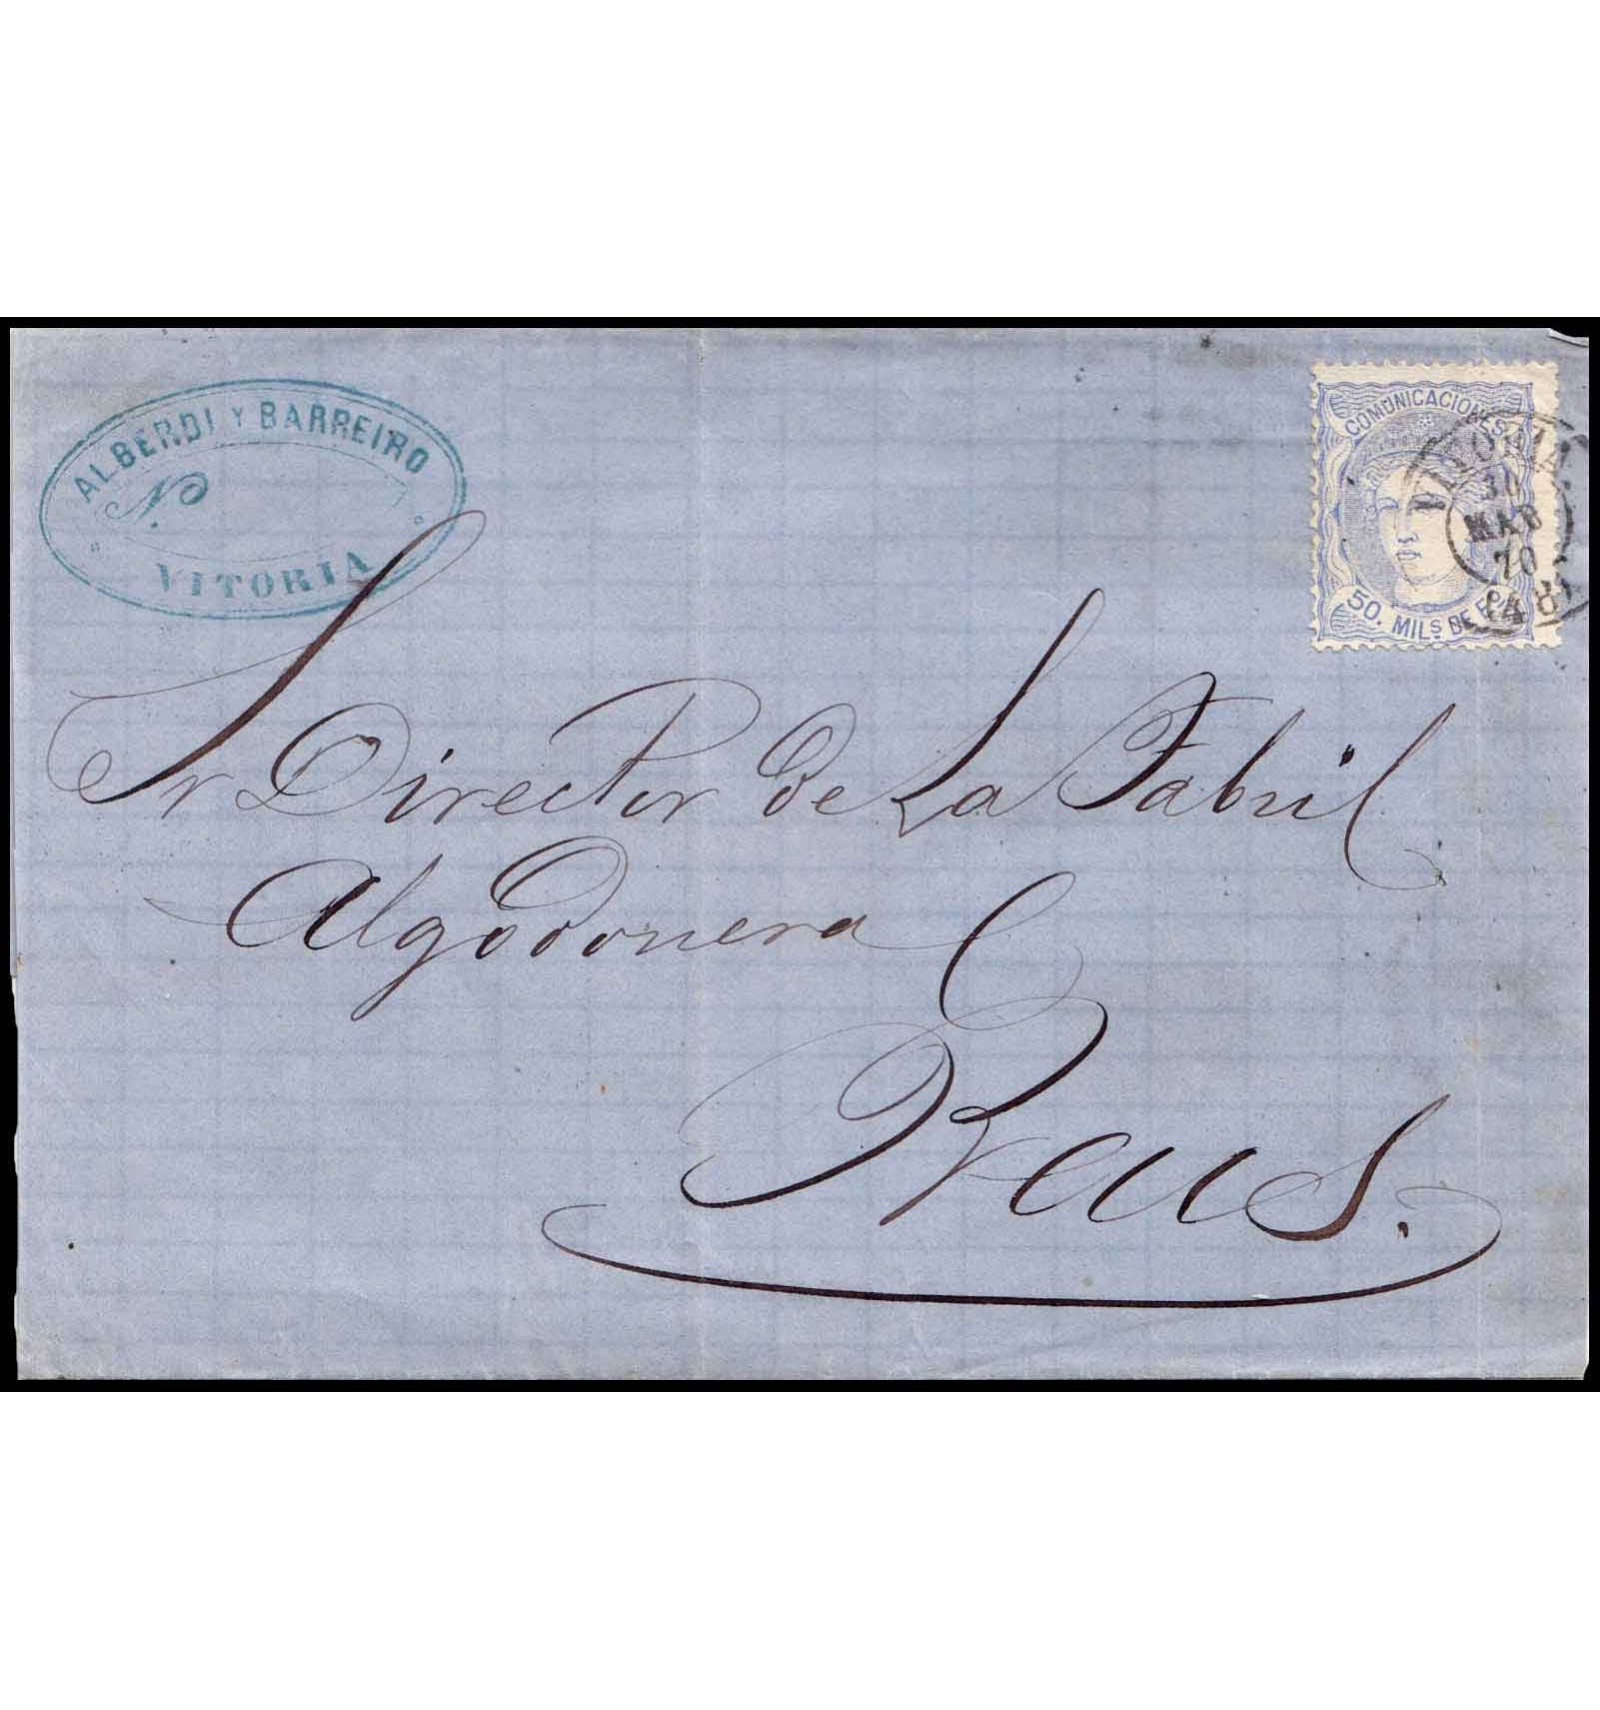 ALBERDI Y BARREIRO
VITORIA
COMUNICACIONES
50. MILS DE E
VITORIA
30
MAR
70
(48)
Sr Director de La Fabril
Algodonera
Reus.